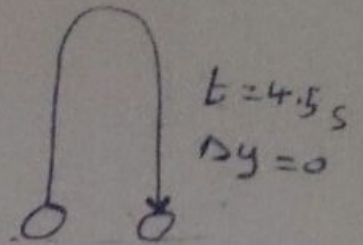 t = 4.5 s
Δy = 0